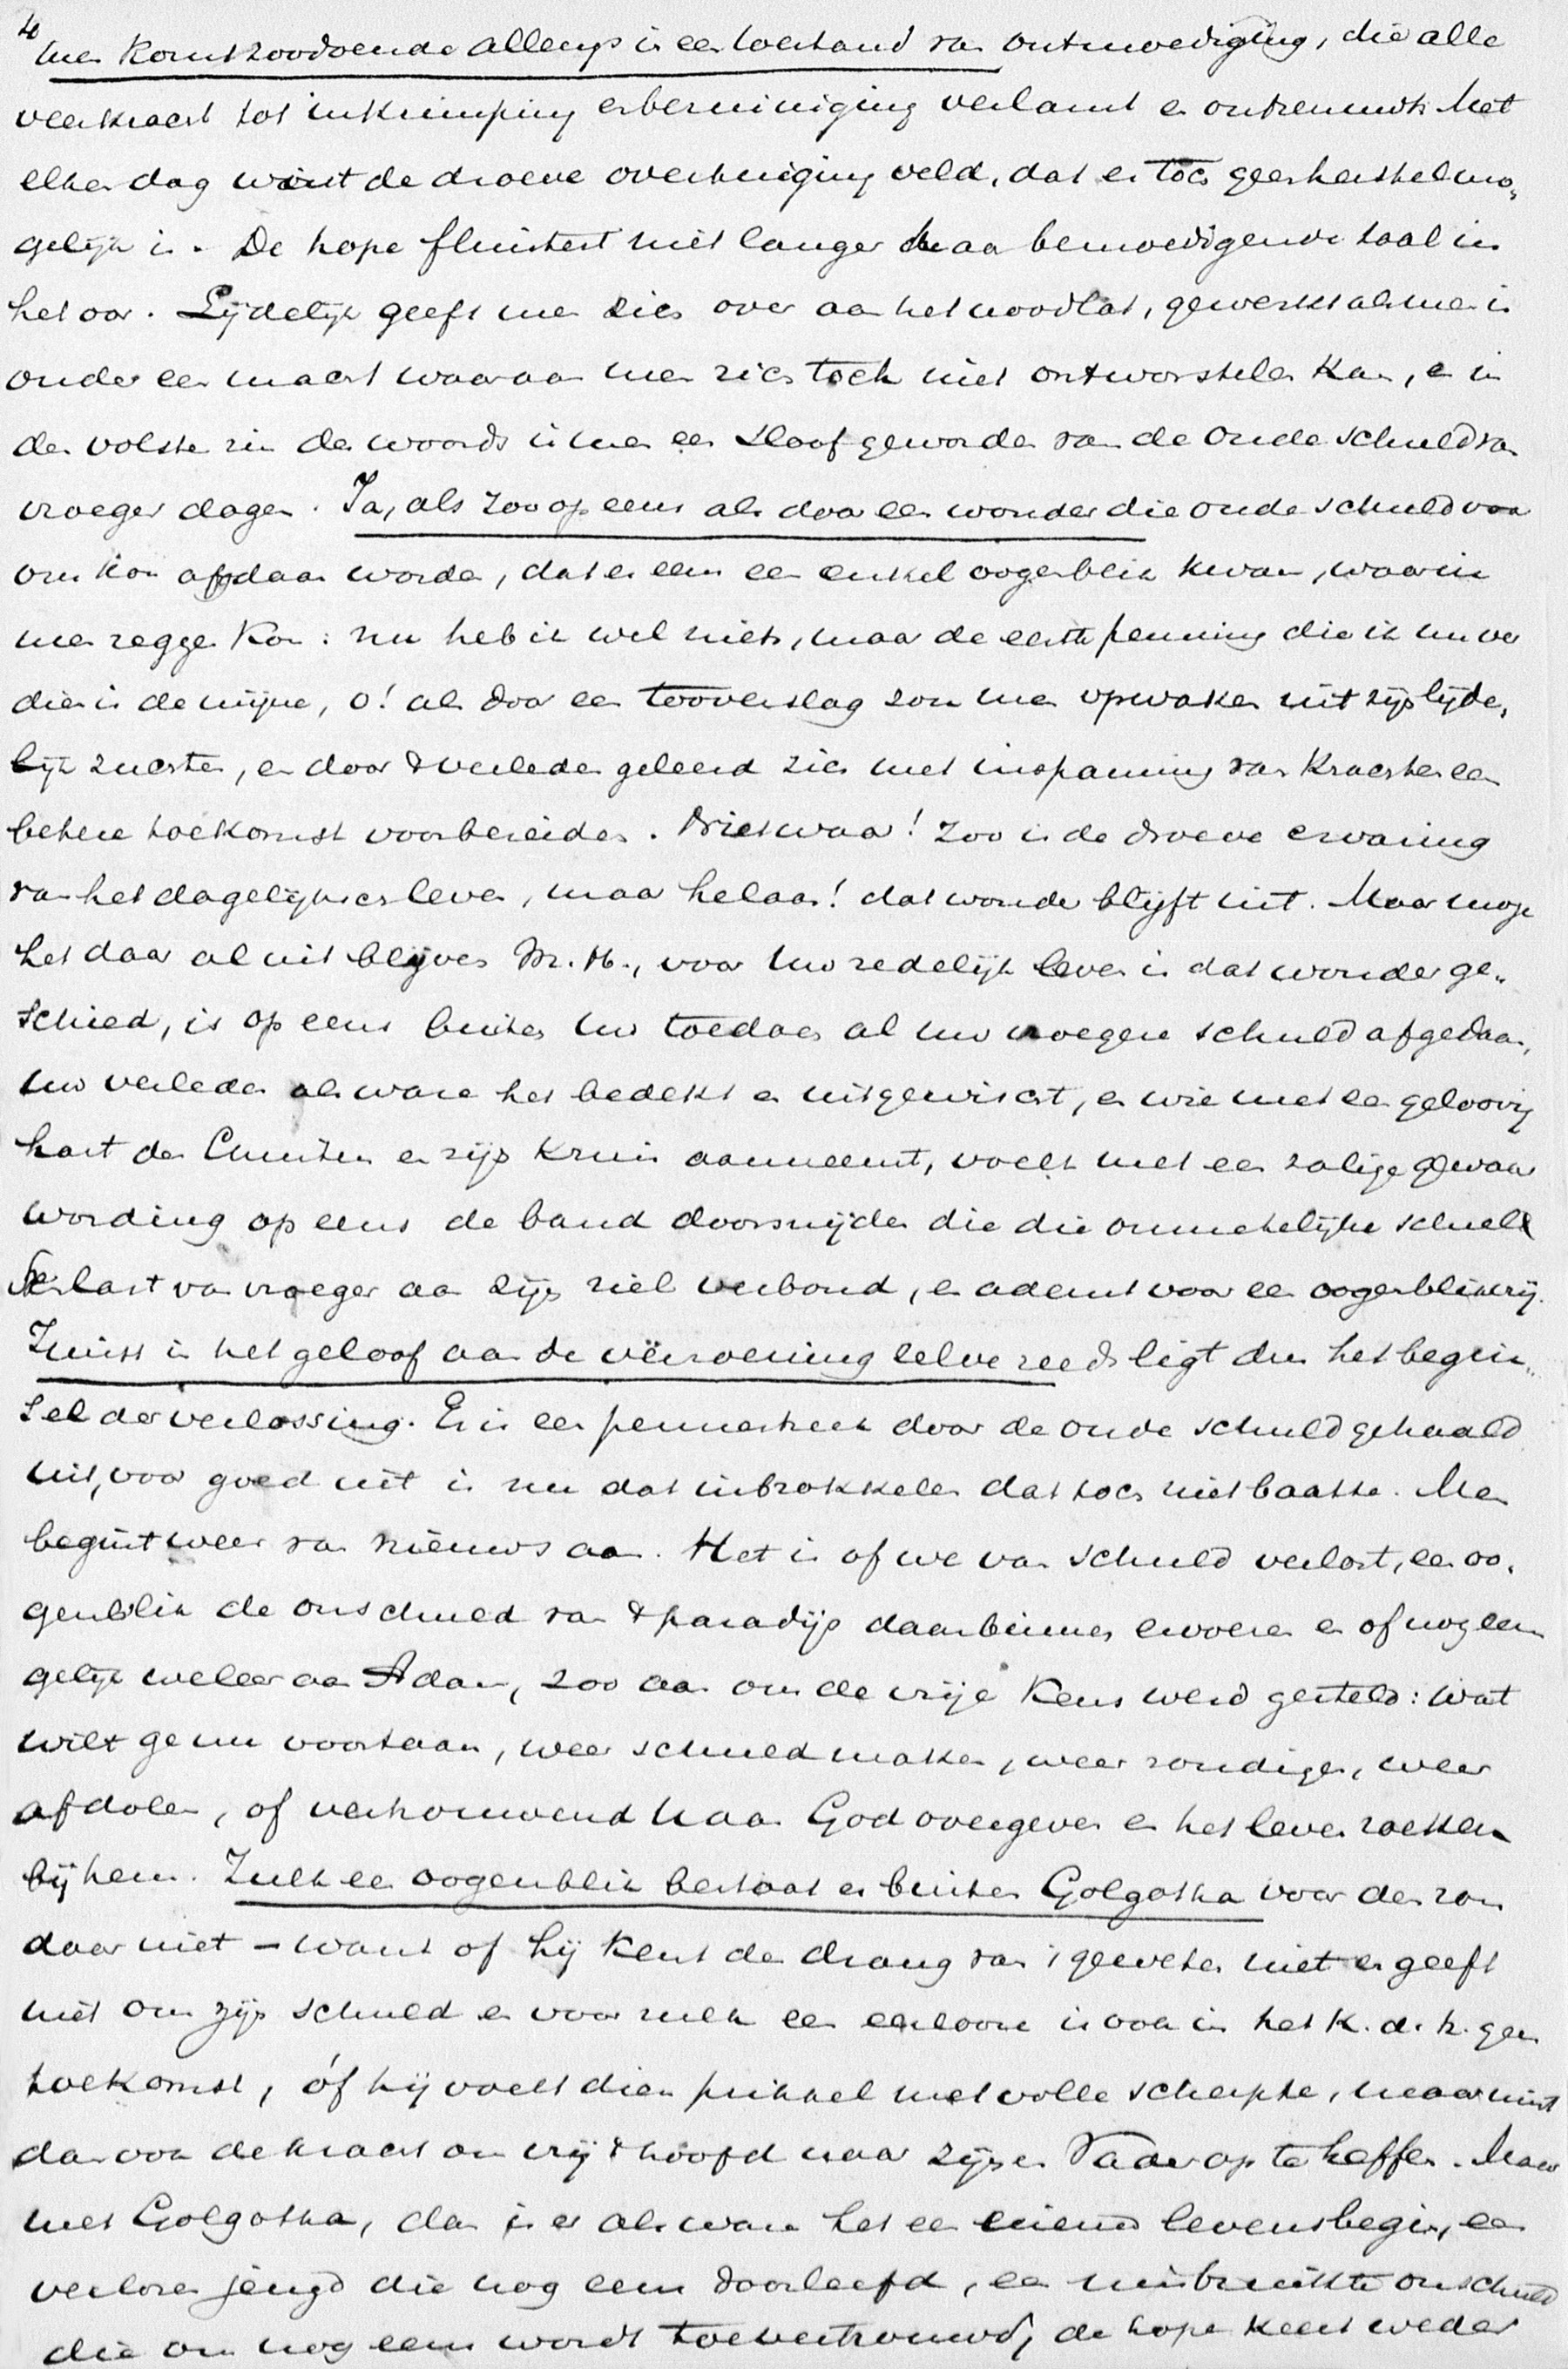 4
men komt zoodoende allengs in een toestand van ontmoediging, die alle
veerkracht tot inkrimping en bezuiniging verlamt en ontzenuwt. Met
elken dag wint de droeve overtuiging veld, dat er toch geen herstel mo„
gelijk is. De hope fluistert niet langer haar bemoedigende taal in
het oor. Lijdelijk geeft men zich over aan het noodlot, als men is
onder een macht waaraan men zich toch niet ontworstelen kan, en in
den volsten zin des woords is men een slaaf geworden van de oude schuld van
vroeger dagen. Ja, als zoo op eens als door een wonder die oude schuld voor
ons kon afgedaan worden, dat er eens een enkel oogenblik kwam, waarin
men zeggen kon: nu heb ik wel niets, maar de eerste penning die ik nu ver
dien is de mijne, o! als door een tooverslag zou men opwaken uit zijn lijde„
lijk zuchten, en door 't verleden geleerd zich met inspanning van krachten een
betere toekomst voorbereiden. Niet waar! Zoo is de droeve ervaring
van het dagelijksch leven, maar helaas! dat wonder blijft uit. Maar moge
het daar al uit blijven M. H., voor uw zedelijk leven is dat wonder ge„
schied, is op eens buiten uw toedoen al uw vroegere schuld afgedaan,
uw verleden als ware het bedekt en uitgewischt, en wie met een geloovig
hart den Christus en zijn kruis aanneemt, voelt met een zalige gewaar
wording op eens de band doorsnijden die die onmetelijke schuld
last van vroeger aan zijn ziel verbond, en ademt voor een oogenblik vrij.
Juist in het geloof aan de verzoening zelve reeds ligt dus het begin„
sel der verlossing. Er is een pennestreek door de oude schuld gehaald
uit, voor goed uit is nu dat inbrokkelen dat toch niet baatte. Men
begint weer van nieuws aan. Het is of we van schuld verlost, een oo„
genblik de onschuld van 't paradijs daarbinnen ervoeren en of nog eens
gelijk weleer aan Adam, zoo aan ons de vrije keus werd gesteld: wat
wilt ge nu voortaan, weer schuld maken, weer zondigen, weer
afdolen, of vertrouwend u aan God overgeven en het leven zoeken
bij hem. Zulk een oogenblik bestaat er buiten Golgotha voor den zon
daar niet – want of hij kent den drang van 't geweten niet en geeft
niet om zijn schuld en voor zulk een eerlooze is ook in het K. d. h. geen
toekomst, óf hij voelt dien prikkel met volle scherpte, maar mist
dan ook de kracht om vrij 't hoofd naar zijnen Vader op te heffen. Maar
met Golgotha, dan is er als ware het een nieuw levensbegin, een
verloren jeugd die nog eens doorleefd, een misbruikte onschuld
die ons nog eens wordt toevertrouwd, de hope keert weder